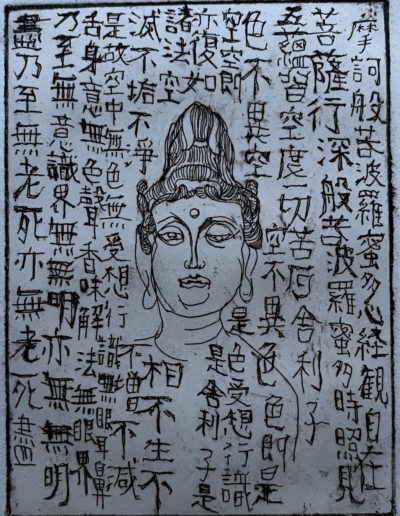 摩訶般若波羅蜜多心経観自在
菩薩行深般若波羅蜜多時照見
五蘊皆空度一切苦厄舍利子
色不異空空不異色色即是
空空即是色受想行識
亦復如是舍利子是
諸法空相不生不
滅不垢不淨不增不減
是故空中無色無受想行識無眼耳鼻
舌身意無色聲香味解法無眼界
乃至無意識界無無明亦無無明
盡乃至無老死亦無老死盡